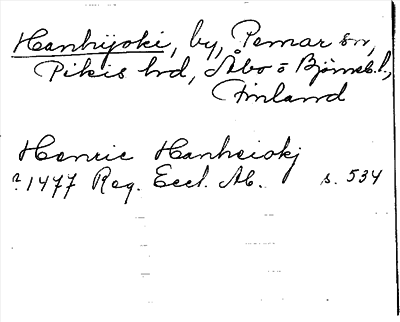 Hanhijoki, by, Pemar sn,
Pikis hd, Åbo o Björneb. l.,
Finland
Henric Hanheioki
? 1477 Reg. Eccl. Ab. s. 534